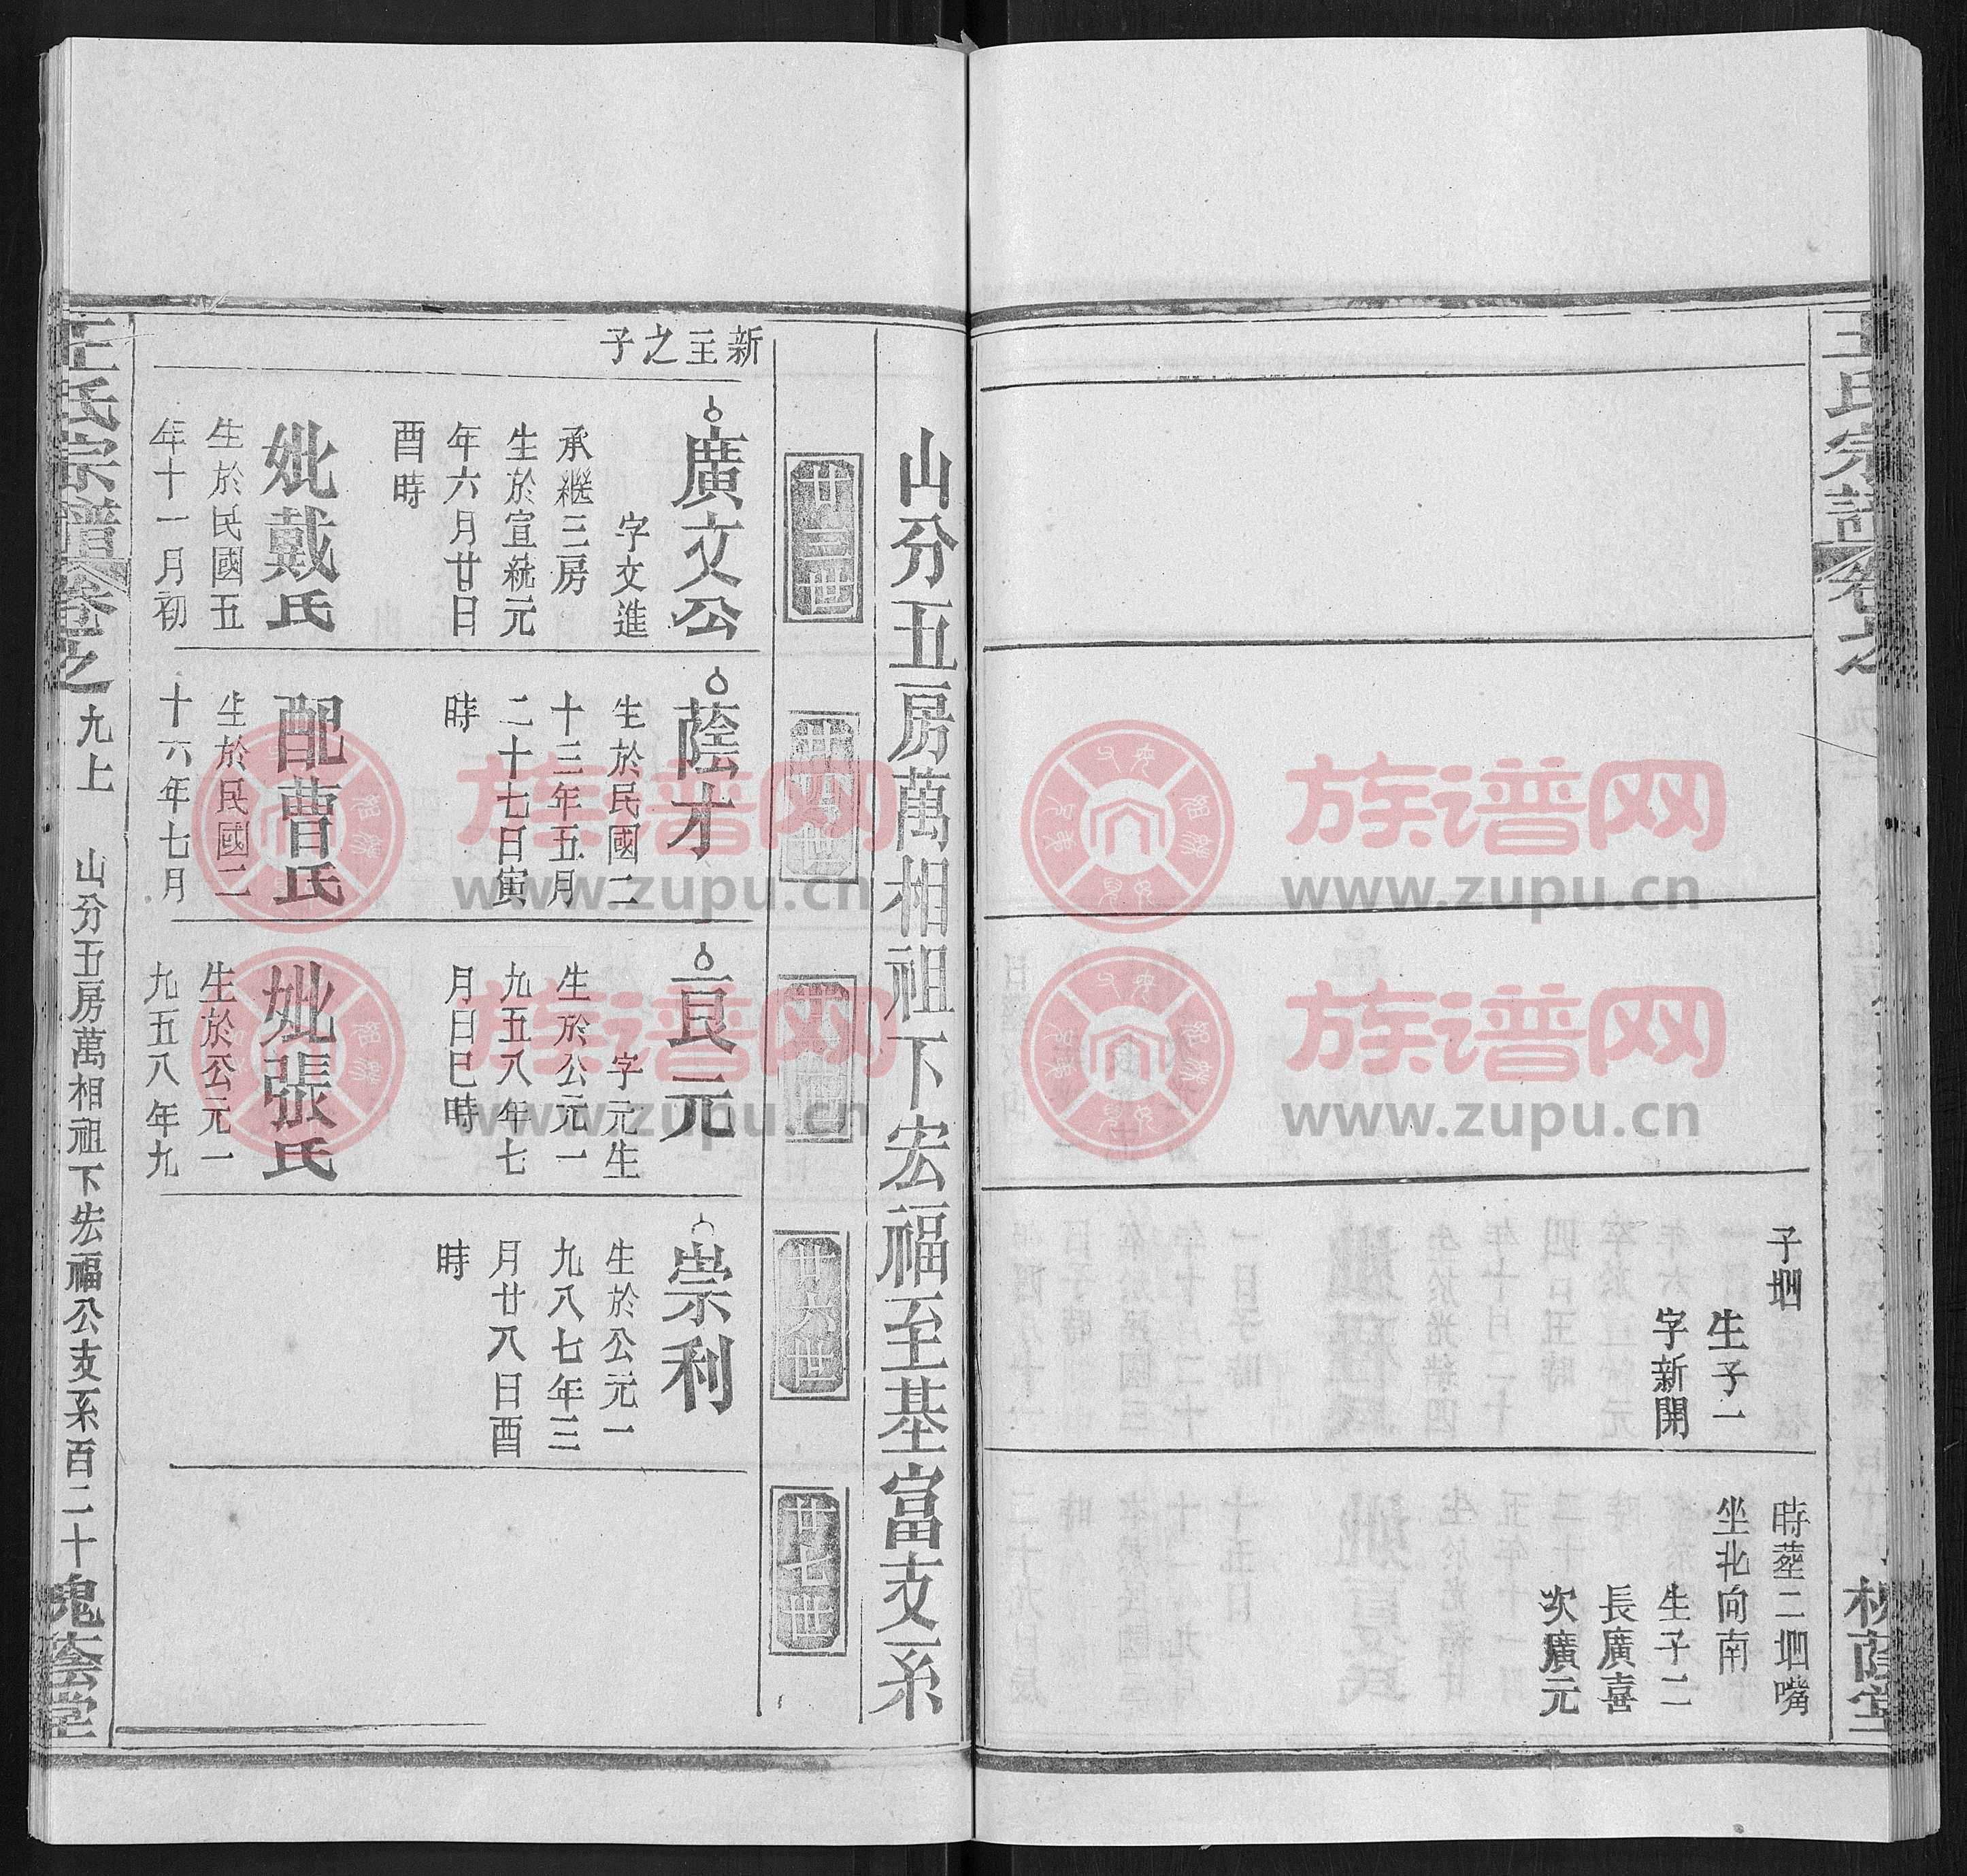 王氏宗譜
子𡋾
生子一
字新開
時塟二𡋾嘴
坐北向南
生子二
長廣喜
次廣元
山分五房萬相祖下宏福至基富支系
廿三世
廿四世
廿六世
廿七世
新主之子
廣文公
字文進
承繼三房
生於宣統元
年六月廿日
酉時
妣戴氏
生於民國五
年十一月初
蔭才
生於民國二
十三年五月
二十七日寅
時
配曹氏
生於民國二
十六年七月
良元
字元生
生於公元一
九五八年七
月日巳時
妣張氏
生於公元一
九五八年九
崇利
生於公元一
九八七年三
月廿八日酉
時
王氏宗譜
卷之九上
山分五房萬相祖下宏福公支系百二十
槐蔭堂
族谱网
www.zupu.cn
族谱网
www.zupu.cn
族谱网
www.zupu.cn
族谱网
www.zupu.cn